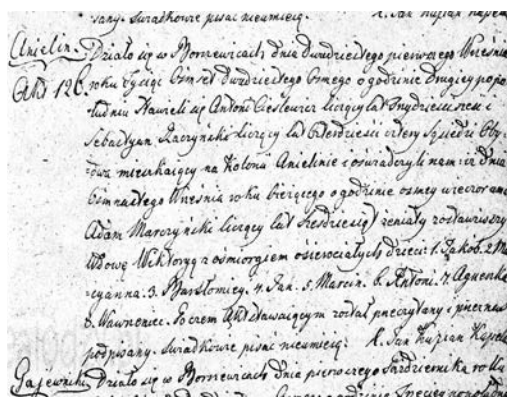 sany. Swiadkowie pisać nieumieią. X. Jan Kupian
Anielin. Działo się w Borszewicach dnia Dwudziestego pierwszego Wrzesnia
Akt 126. roku tysiąc Osmset dwudziestego Osmego o godzinie drugiey popo-
łudniu Stawili się Antoni Cieslewicz liczący lat Trzydziesci szesc i
Sebastyan Raczynski liczący lat Czterdziesci cztery Sąsiedzi Oby-
dwa mieszkaiący na Kolonii Anielinie i oświadczyli nam: iż dnia
Osmnastego Wrzesnia roku bieżącego o godzinie osmey wieczorem
Adam Marczyński liczący lat szesdziesiąt żeniaty zostawiwszy
Wdowę Wiktoryą z ośmiorgiem osierociałych dzieci: 1. Jakób. 2 Ma-
ryanna. 3. Barsłomiey. 4. Jan. 5. Marcin. 6. Antoni. 7. Agnieszka
8. Wawrzeniec. Po czem Akt stawaiącym został przeczytany i pierwszy
podpisany. Swiadkowie pisać nieumieią: X. Jan Kupian
Gajewniki. Działo się w Borszewicach dnia pierwszego Pazdziernika roku
godzinie Trzeciey popołudniu